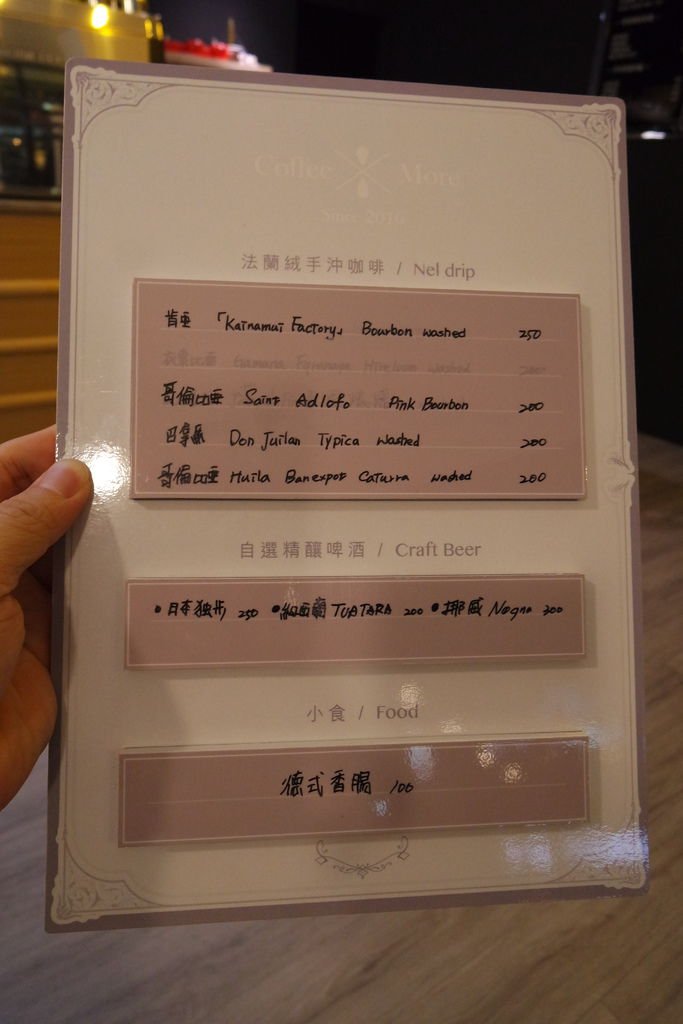 Coffee More
Since 2016
法蘭絨手沖咖啡 / Nel drip
肯亞 「Kainamui Factory」 Bourbon washed 250
衣索比亞 washed 200
哥倫比亞 Saint Adlofo Pink Bourbon 200
巴拿馬 Don Juilan Typica washed 200
哥倫比亞 Huila Banexpor Caturra washed 200
自選精釀啤酒 / Craft Beer
•日本独步 250 •紐西蘭 TUATARA 200 •挪威 Nøgne 300
小食 / Food
德式香腸 100